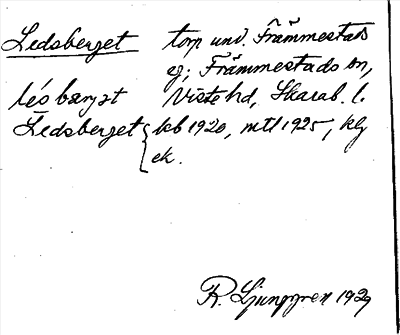 Ledsberget torp und. Främmestads
eg; Främmestads sn,
lésbærjət Viste hd, Skarab. l.
Ledsberget { kb 1920, mtl 1925, klg
ek.
R. Ljunggren 1929